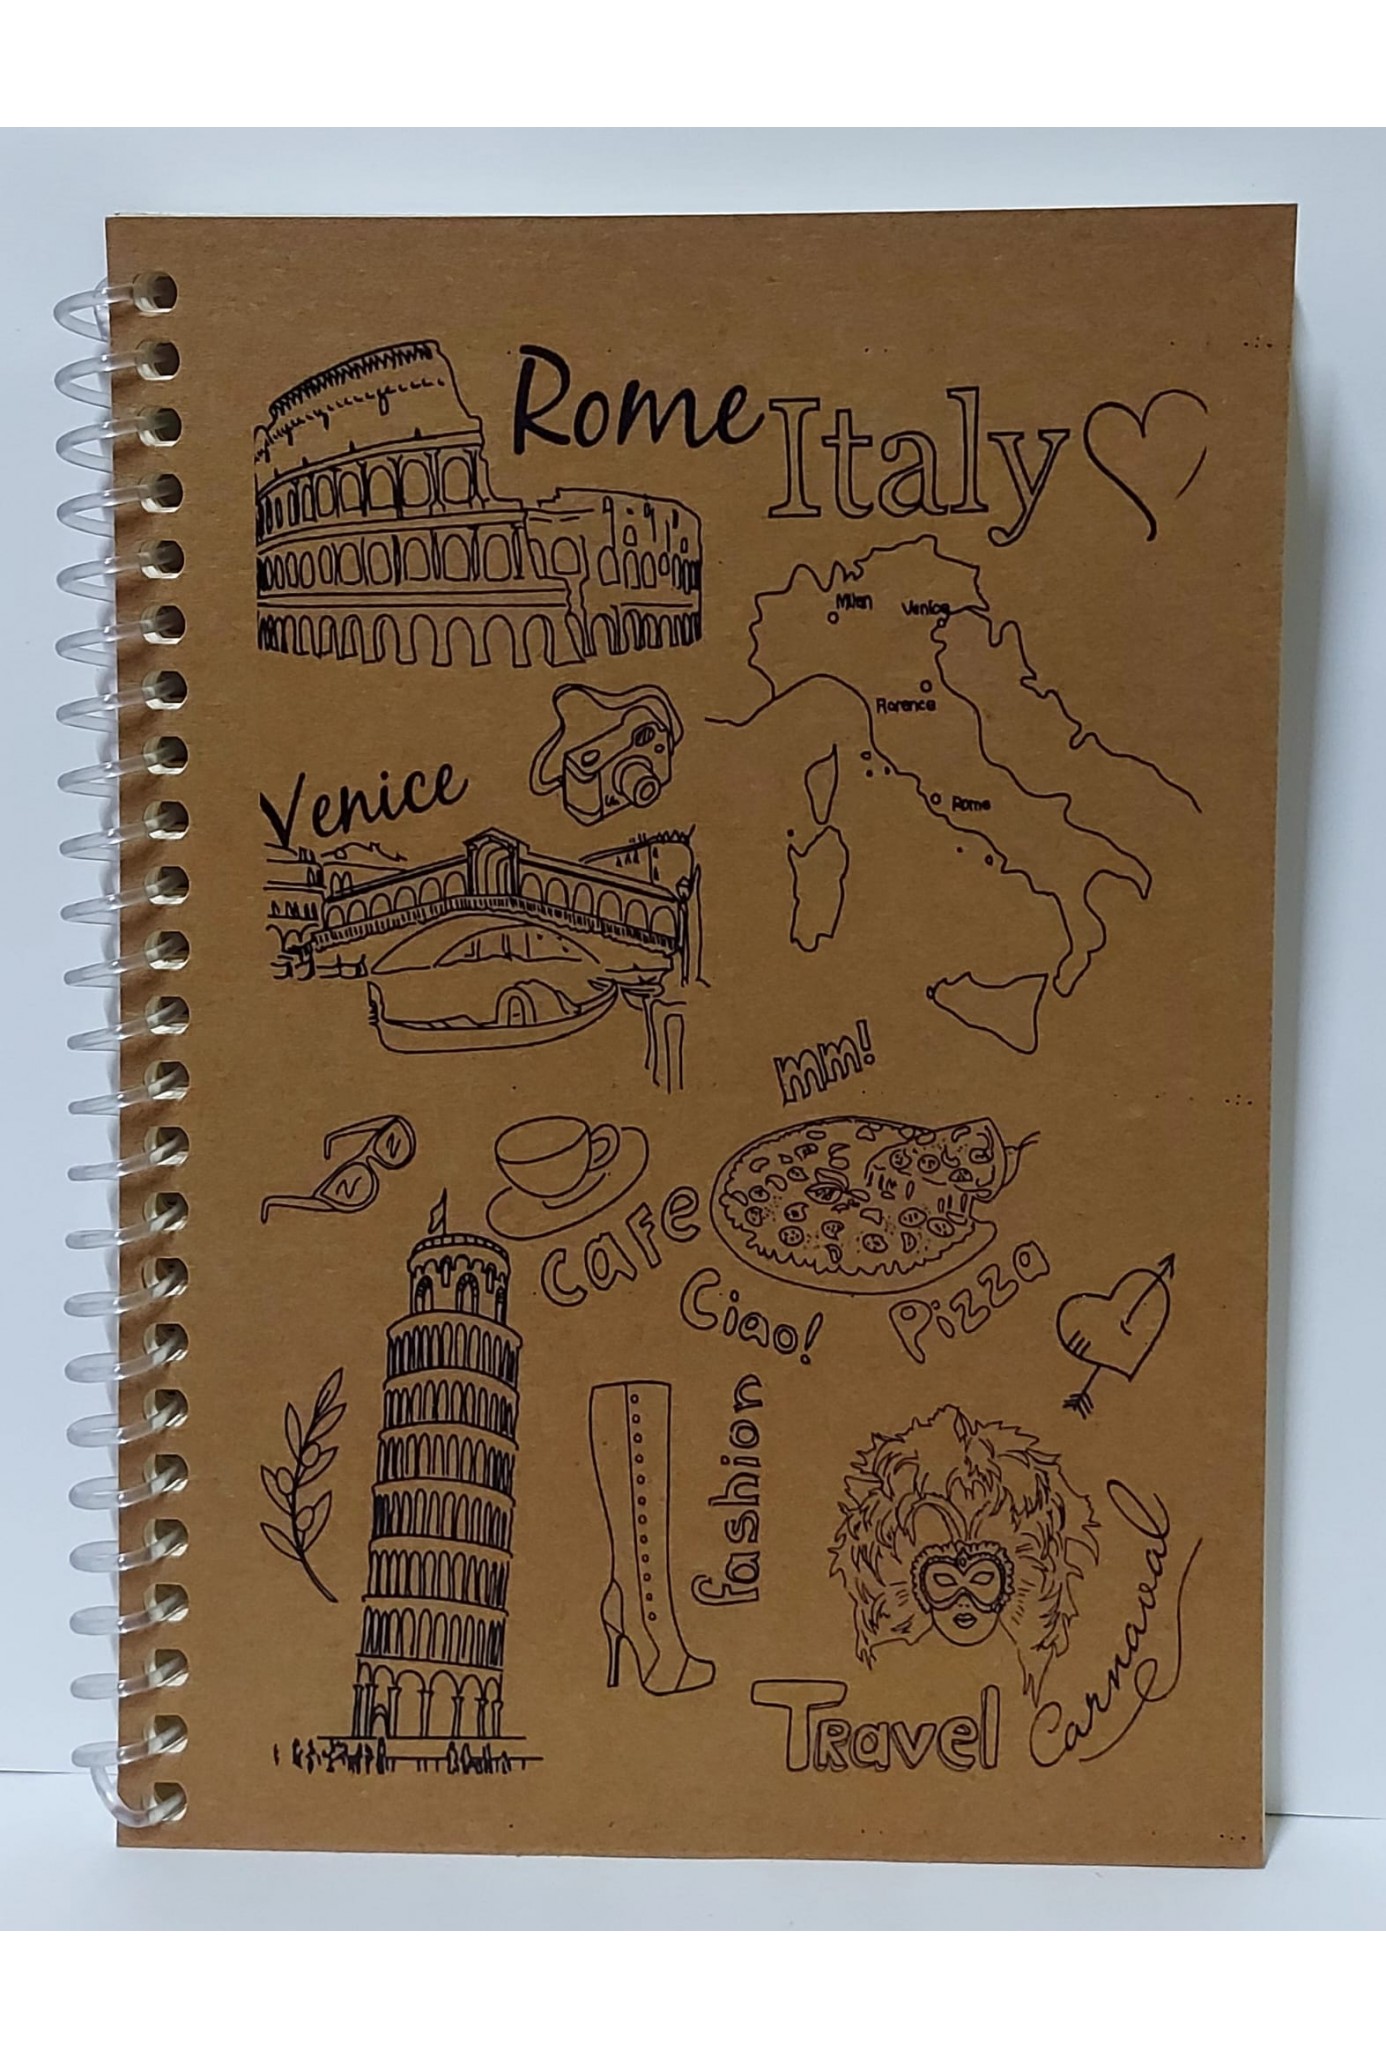 Rome
Italy
Milan
Venice
Florence
Rome
Venice
mm!
Cafe
Ciao!
Pizza
fashion
Carnaval
Travel